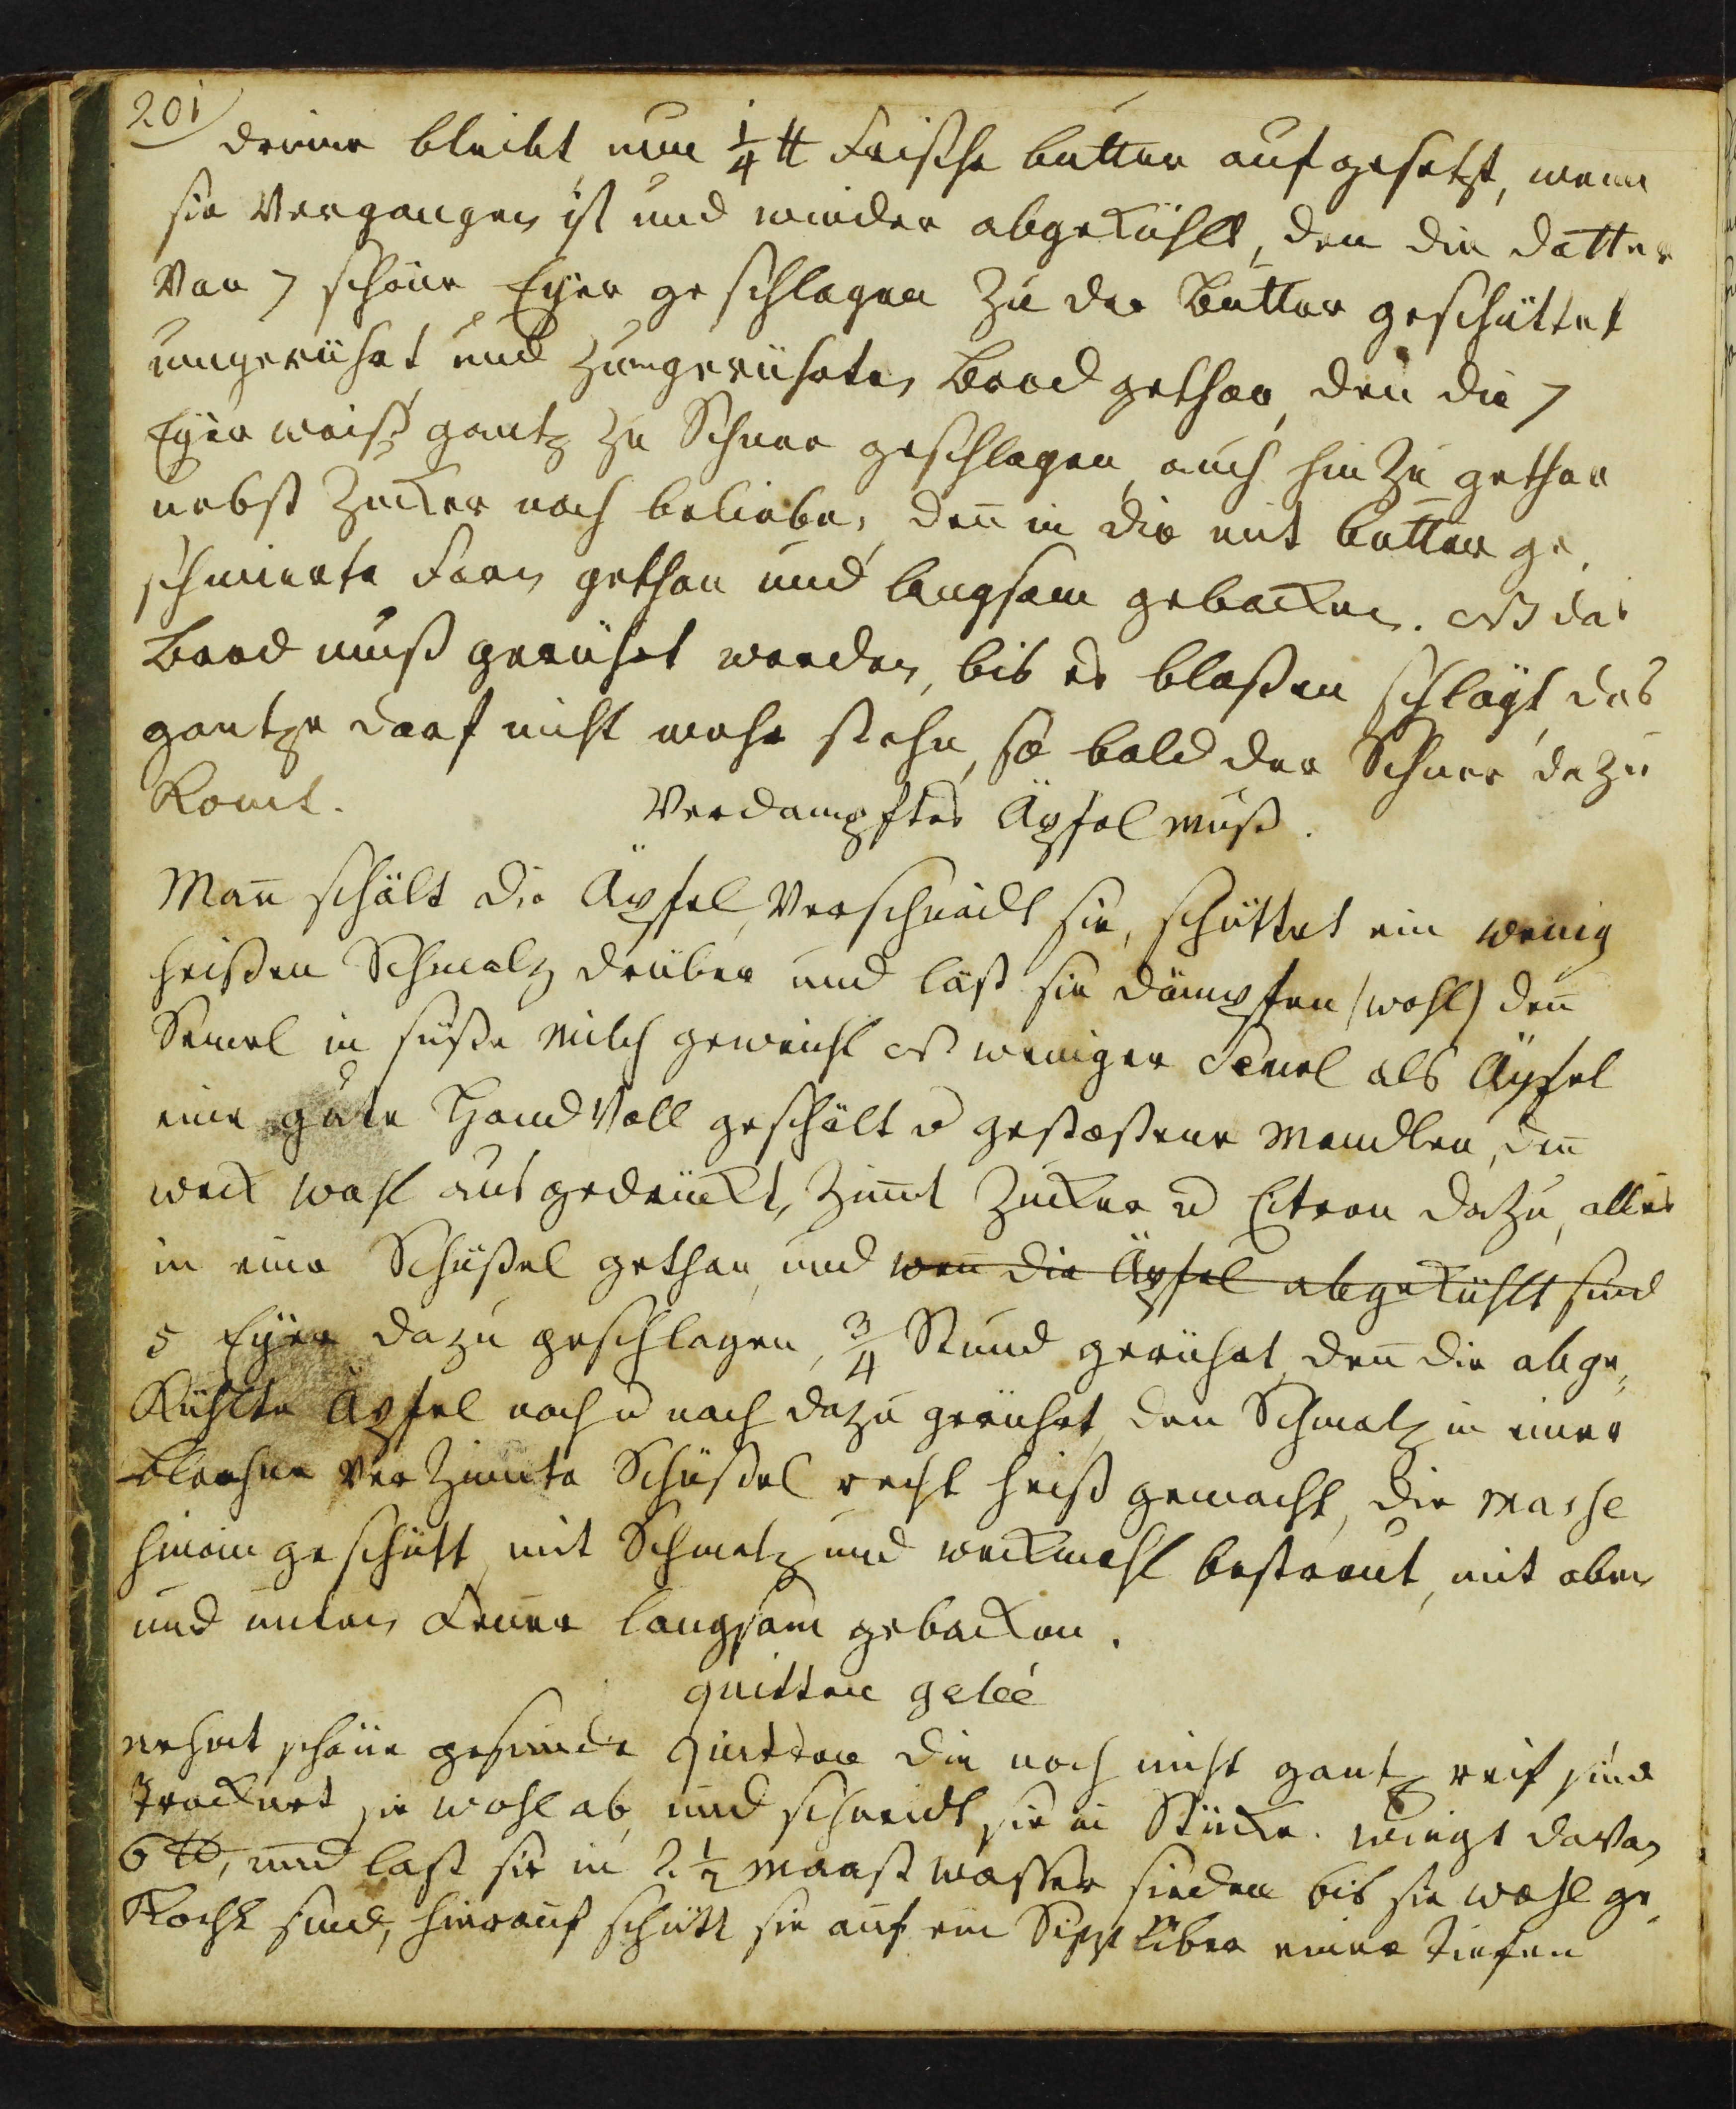 201
drinne bleibt, nun 1/4 ℔ Frische butter aufgesetzt, wenn
sie Vergangen ist und wieder abgekühlt, den die dotter
Von 7 schöne Eyer geschlagen zu der Butter geschüttet
umgerührt und zum gerührten Brod gethan, den die 7
Eyer weiß gantz zu Schnee geschlagen, auch hinzu gethan
nebst Zucker nach belieben, deñ in die mit butter ge,
schmierte Form gethan und langsam gebacken. NB das
Brod muß gerührt werden, bis es blaßen schlägt, das
gantze darf nicht mehr stehn, so bald der Schnee dazu
komt.
Verdampftes Äpfel Muß.
Mañ schält die Äpfel, Verschneidt sie, schüttet ein wenig
heißen Schmalz drüber und läst sie dämpfen (wohl) deñ
Semel in süße Milch geweicht NB weniger Semel als Äpfel
eine gute Hand Voll geschält u gestoßene Mandlen, den
weck wohl ausgedrückt, Zimt Zucker u Citron dazu, alles
in eine Schüßel gethan, und weñ die Äpfel abgekühlt sind
5 Eyer dazu geschlagen, 3/4 Stund gerührt, deñ die abge,
kühlte Äpfel nach u nach dazu gerührt, den Schmalz in einer
blechne Verzinnte Schüßel recht heiß gemacht, die Masse
hinein geschütt, mit Schmalz und weckmehl bestreut, mit oben
und unten Feuer langsam gebacken.
quitten gelée
nehmt schöne gesunde Quitten die noch nicht gantz reif sind
Trocknet sie wohl ab, und schneidt sie in Stücke. wiegt daVon
6 ℔, und last sie in 2 1/2 Maaß wasser sieden bis sie wohl ge,
kocht sind, hierauf schütt sie auf ein Sipp über einer tiefen